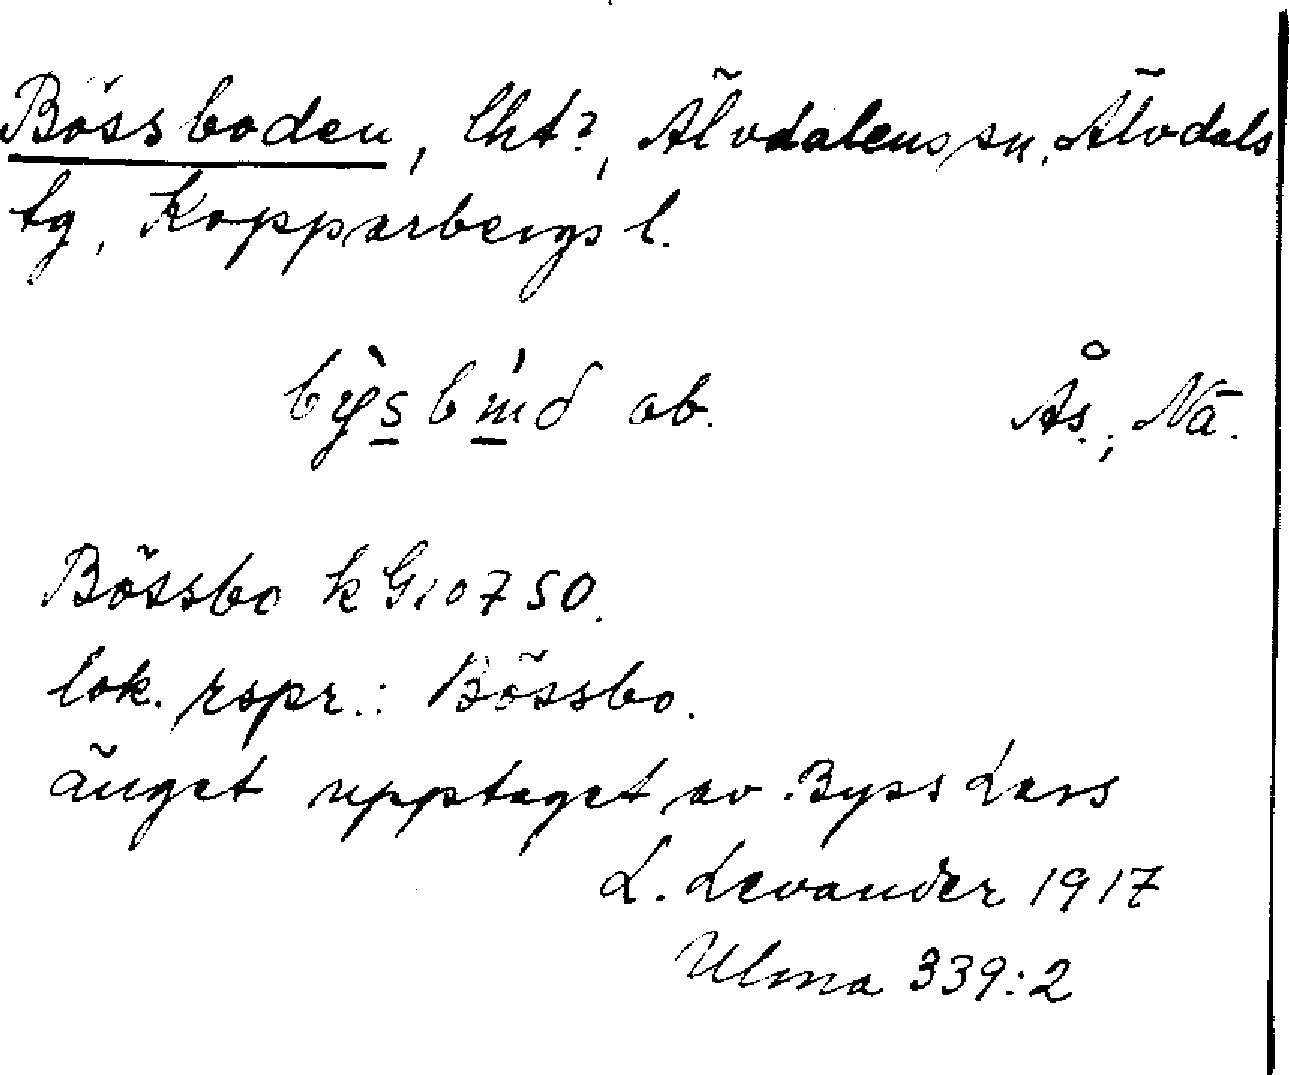 Bössboden, lht?, Älvdalens sn, Älvdals
tg, Kopparbergs l.
ob. Ås., Nä.
Bössbo k G10750.
lok. rspr.: Bössbo.
änget upptaget av Byss Lars
L. Levander 1917
Ulma 339:2